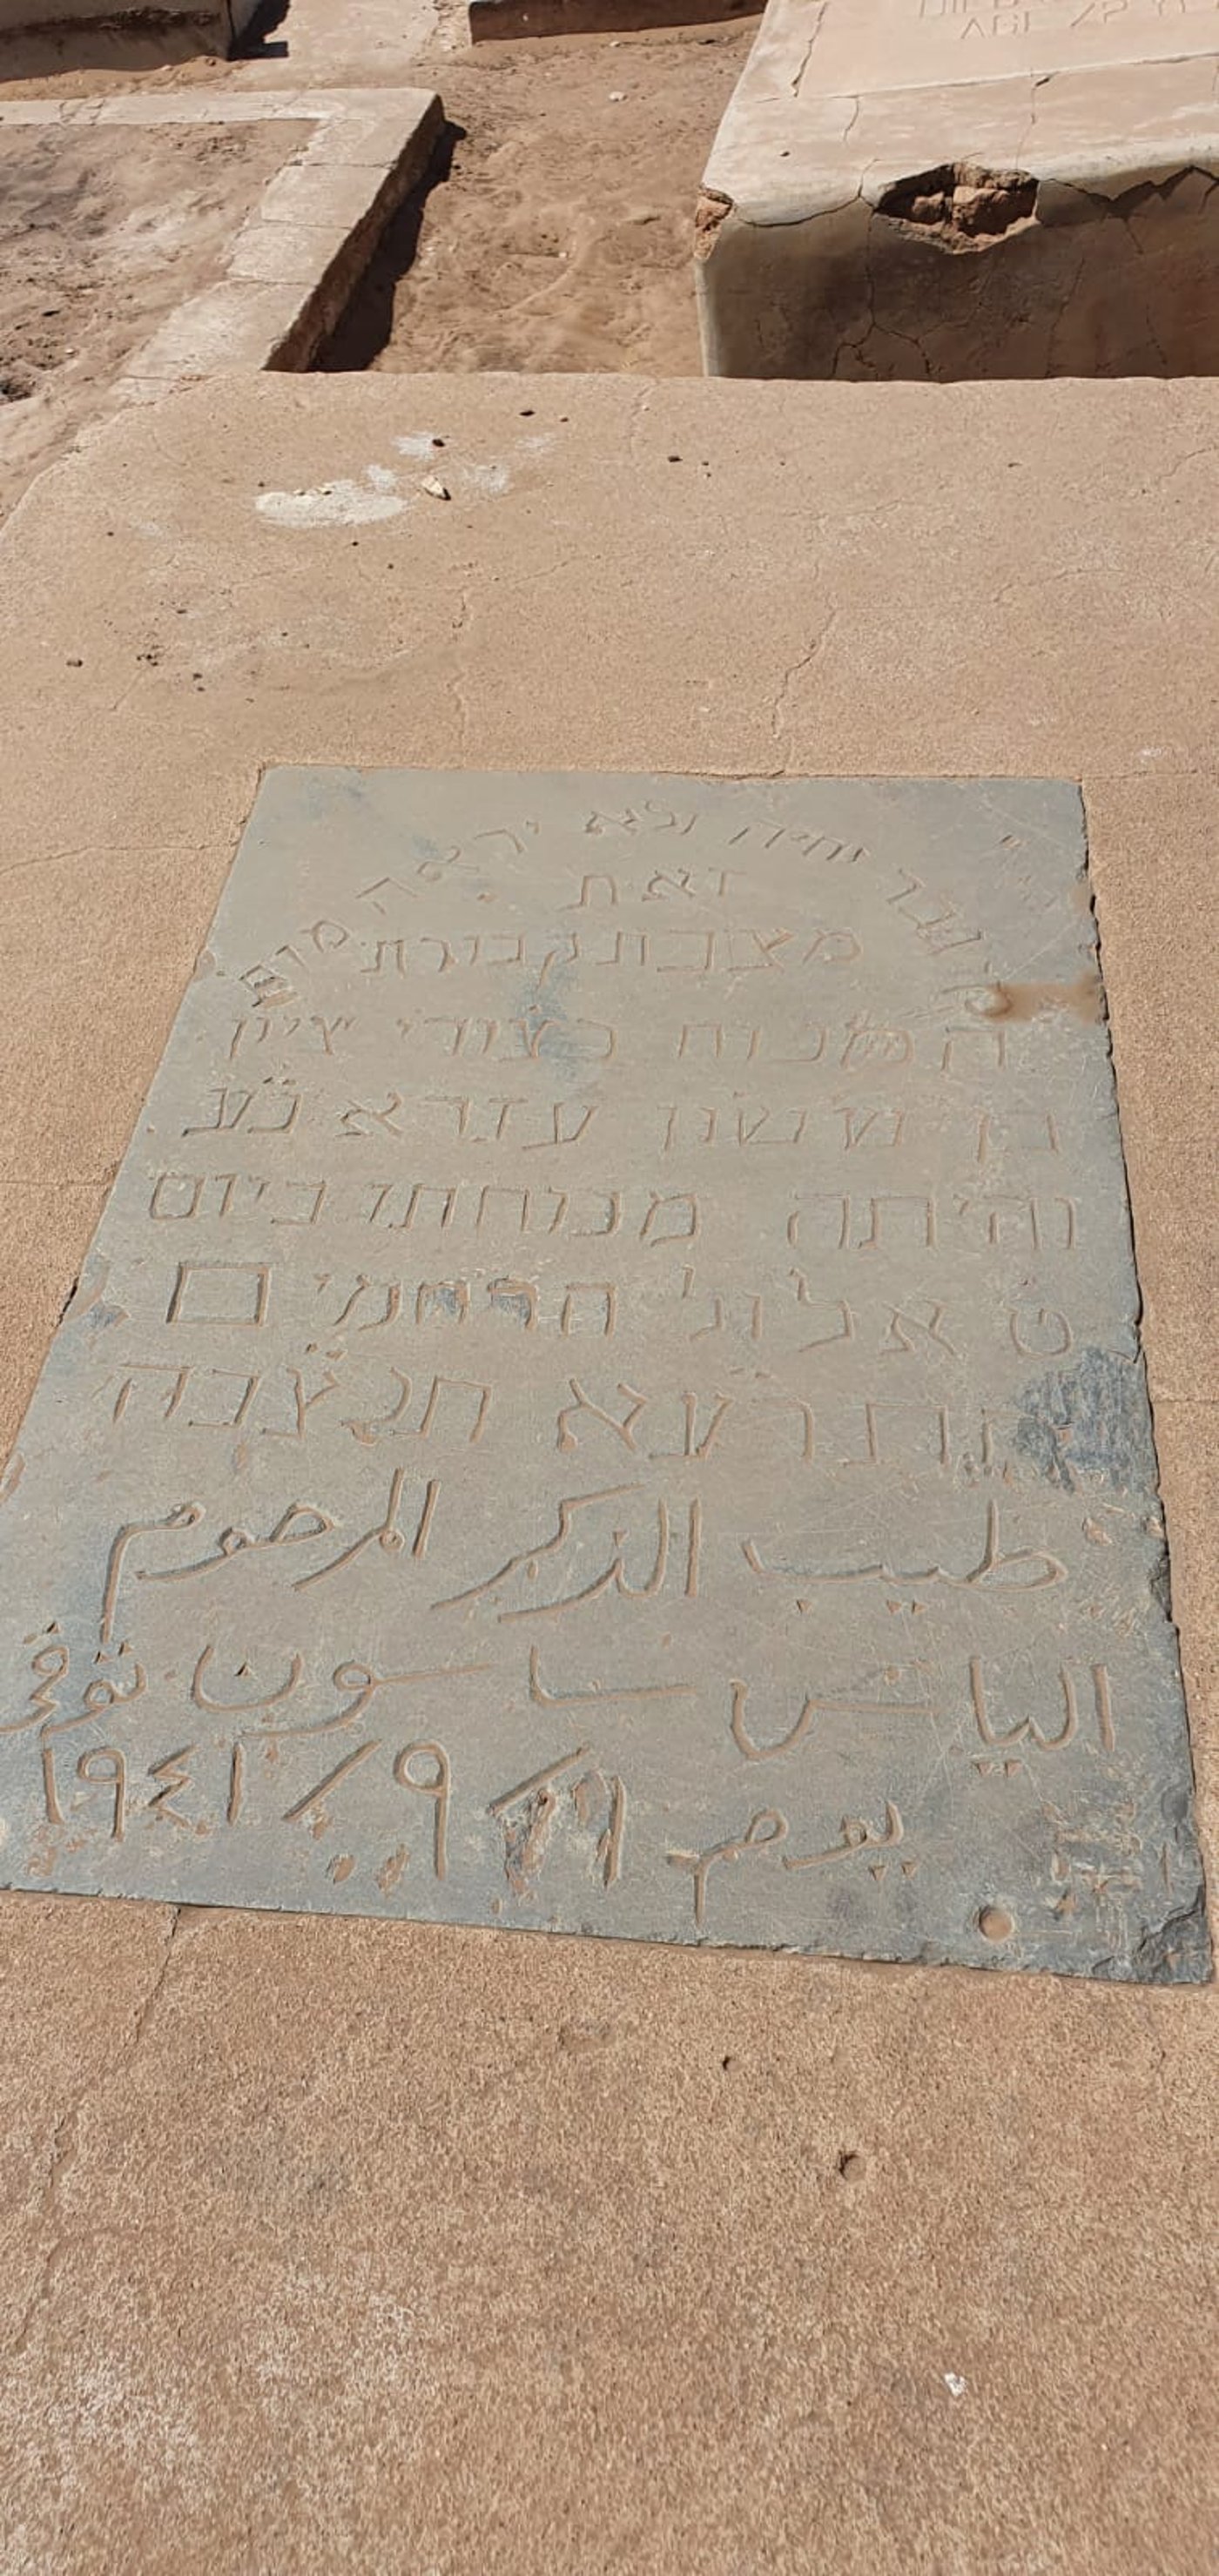 DIED
AGE 72
גבר יחיה ולא יראה מות
זאת
מצבת קבורת
המנוח ציון
בן ששון עזרא נ״ע
והיתה מנוחתו ביום
ט אלול הרחמים
תנצבה
طيب الذكر المرحوم
الياس ساسون توفي
يوم ١ / ٩ / ١٩٤١